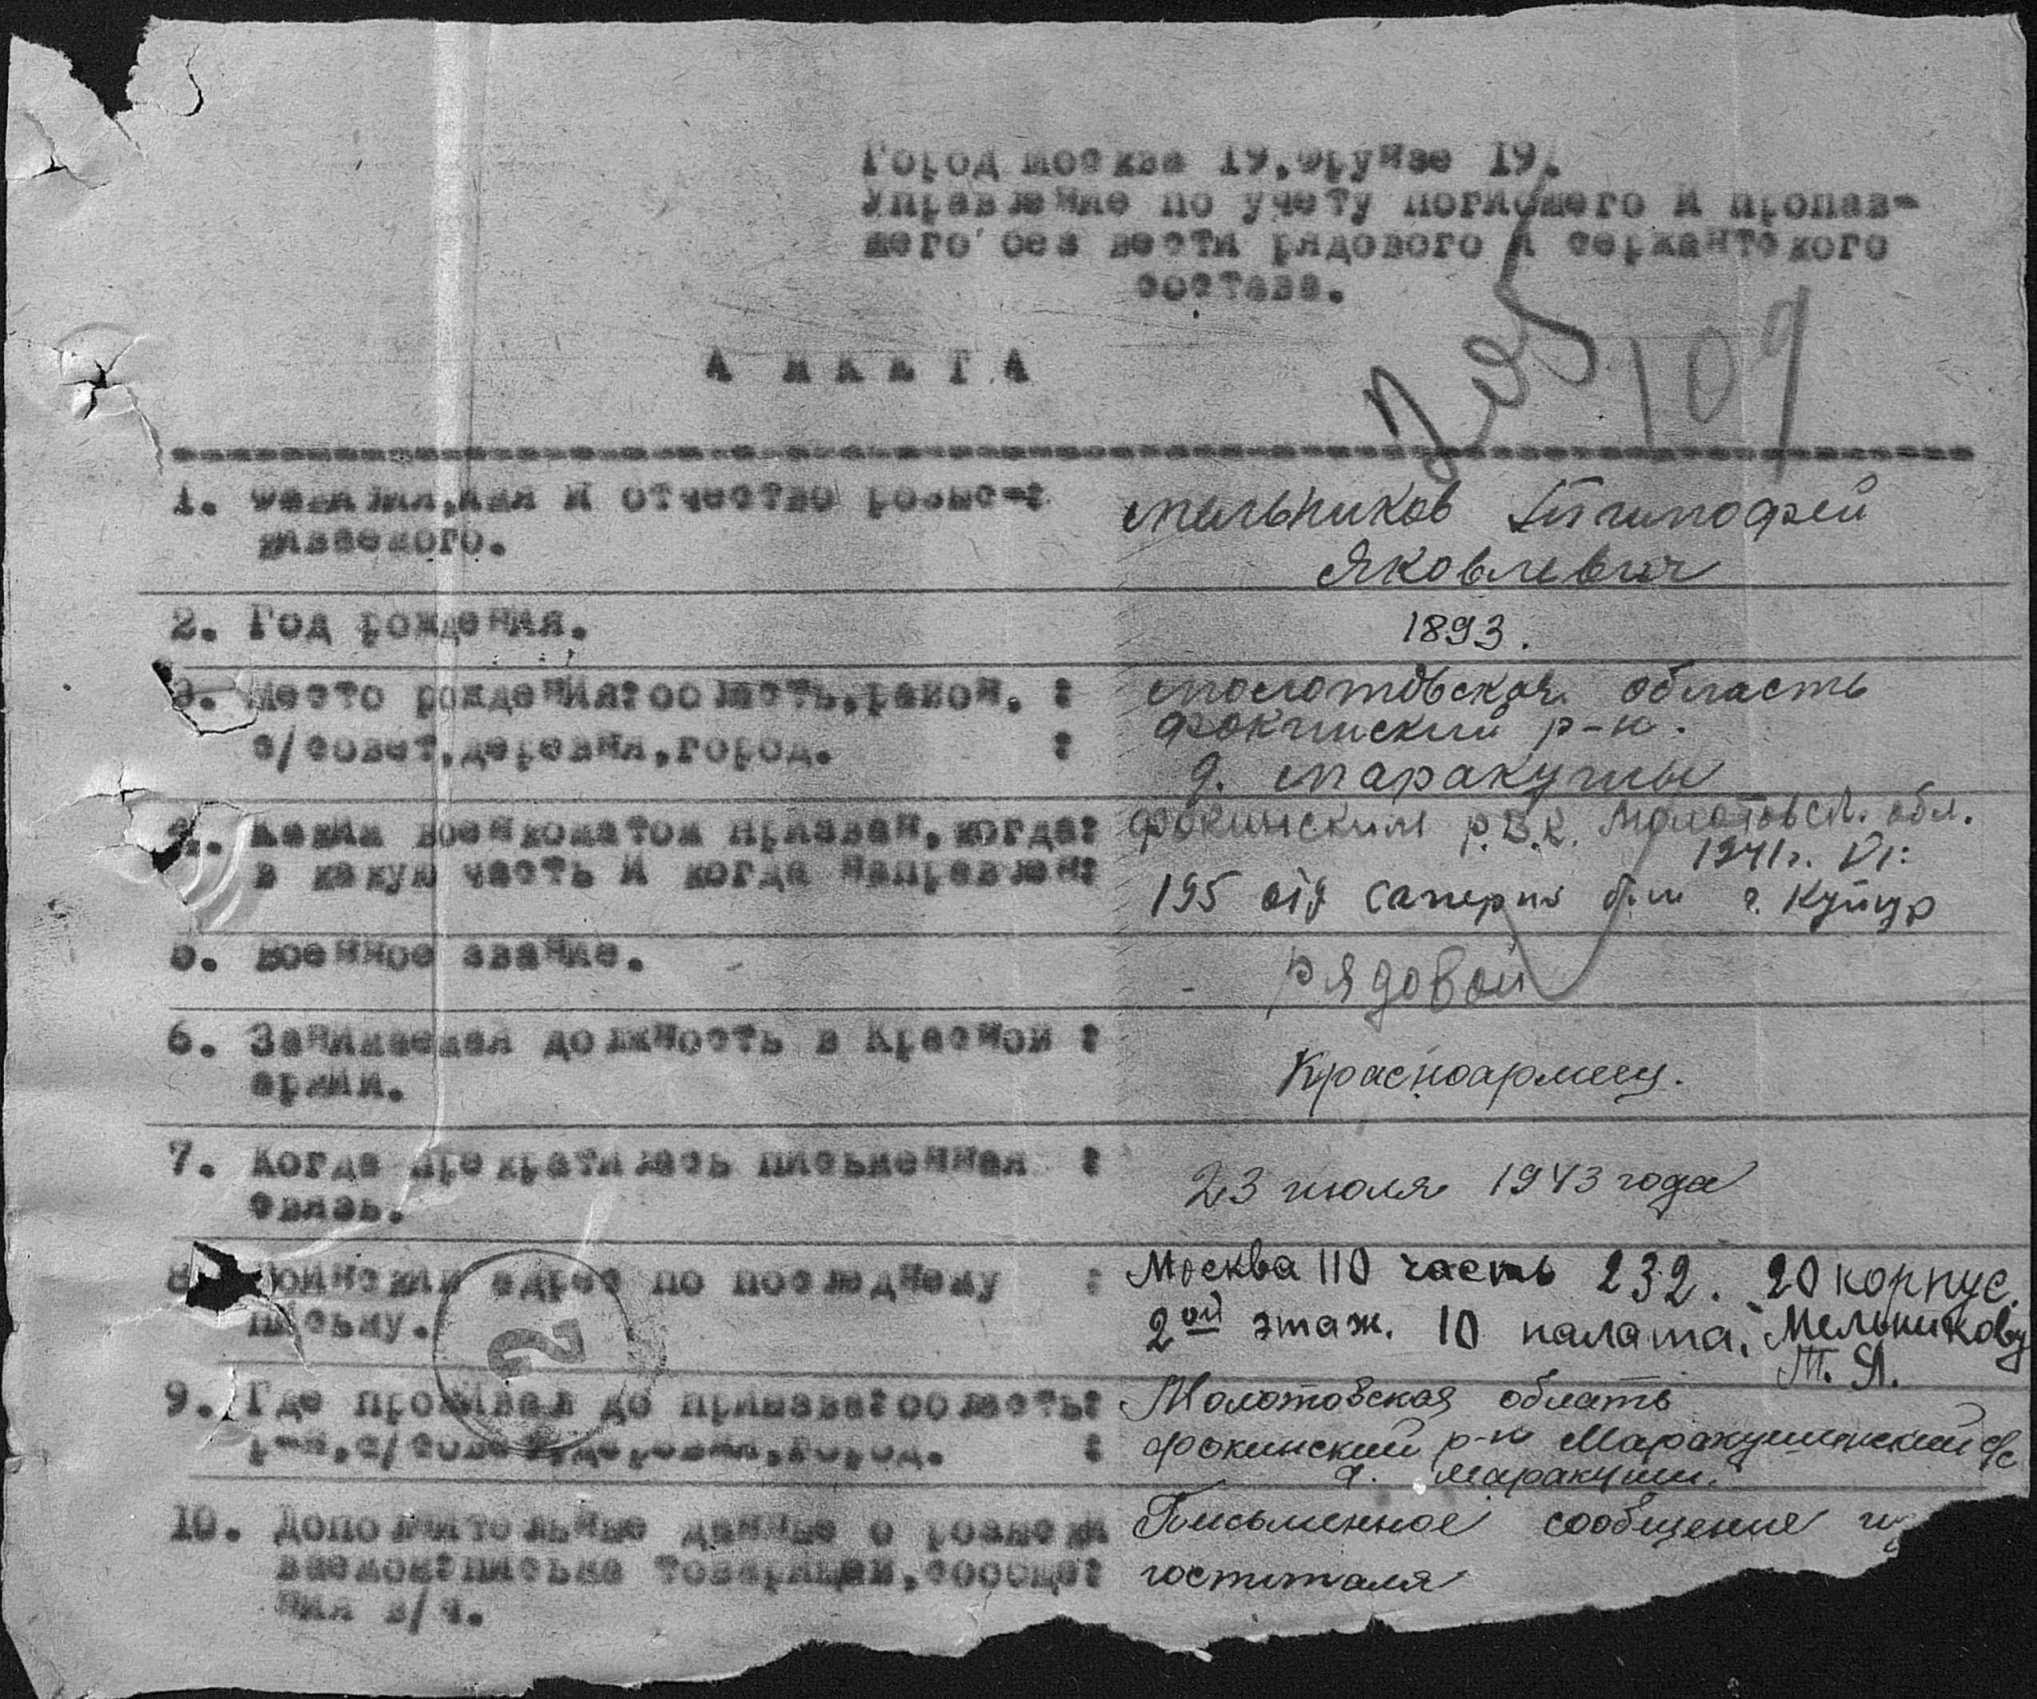 Город Москва 19, Фрунзе 19.
Управление по учету погибшего и пропав-
шего без вести рядового и сержантского
состава.
109
АНКЕТА
1. Фамилия, имя и отчество розыс-:
киваемого.
Мельников Тимофей
Яковлевич
2. Год рождения.
1893.
3. Место рождения: область, район, :
с/совет, деревня, город. :
Молотовская область
Фокинский р-н.
д. Маракуши
4. Каким военкоматом призван, когда:
в какую часть и когда направлен:
Фокинским Р.В.К. Молотовск. обл.
1941г. VI:
195 отд саперн б-н г. Кунгур
5. Военное звание.
рядовой
6. Занимаемая должность в Красной :
армии.
Красноармеец.
7. Когда прекратилась письменная :
связь.
23 июля 1943 года
8. Воинский адрес по последнему :
письму.
2
Москва 110 часть 232. 20 корпус.
2ой этаж. 10 палата. Мельникову
Т. Я.
9. Где проживал до призыва: область:
р-н, с/совет, деревня, город. :
Молотовская облать
Фокинский р-н Маракушинский с/с
д. Маракуши.
10. Дополнительные данные о розыски
ваемом: письма товарищей, сообще:
ния в/ч.
Письменное сообщение из
госпиталя